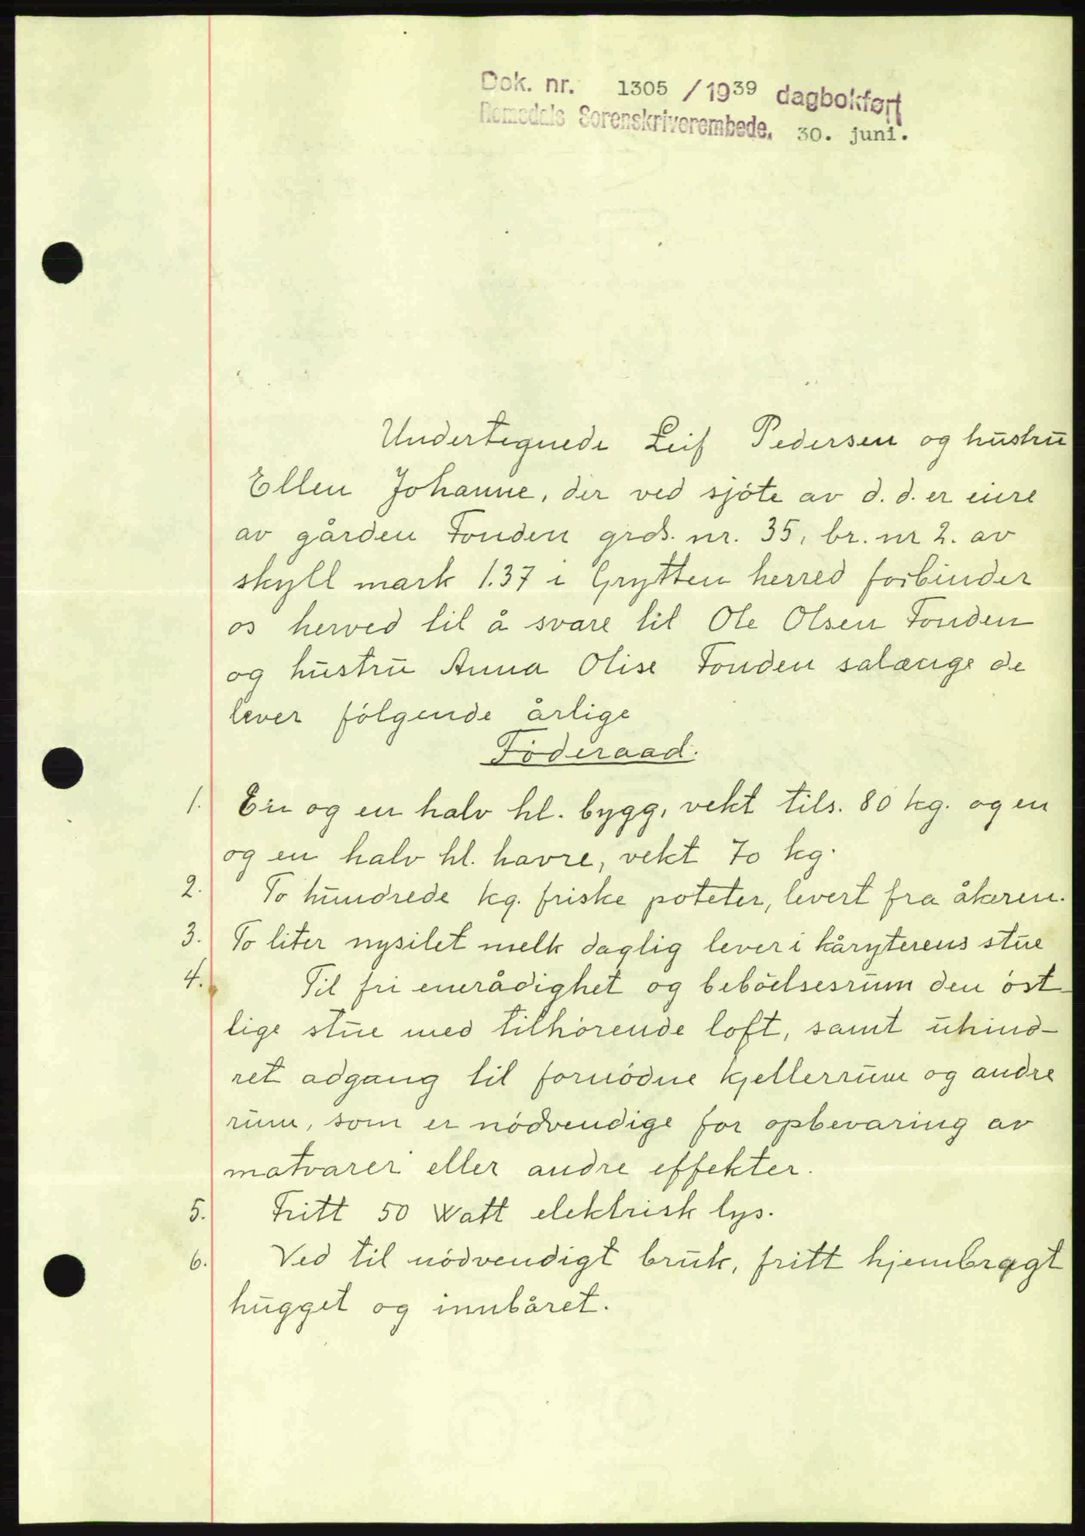 Dok. nr. 1305 / 1939 dagbokført
Romsdals Sorenskriverembede. 30. juni.
Undertegnede Leif Pedersen og hustru
Ellen Johanne, der ved sjöte av d. d. er eiere
av gården Fonden grds. nr. 35, br. nr 2. av
skyll mark 1.37 i Grytten herred forbinder
os herved til å svare til Ole Olsen Fonden
og hustru Anna Olise Fonden salænge de
lever fölgende årlige
Föderaad.
1. En og en halv hl. bygg, vekt tils. 80 kg. og en
og en halv hl. havre, vekt 70 kg.
2. To hundrede kg. friske poteter, levert fra åkeren.
3. To liter nysilet melk daglig lever i kåryterens stue
4. Til fri enerådighet og beböelsesrum den öst-
lige stue med tilhörende loft, samt uhind-
ret adgang til fornödne kjellerrum og andre
rum, som er nödvendige for opbevaring av
matvarer eller andre effekter.
5. Fritt 50 Watt elektrisk lys.
6. Ved til nödvendigt bruk, fritt hjembragt
hugget og innbåret.